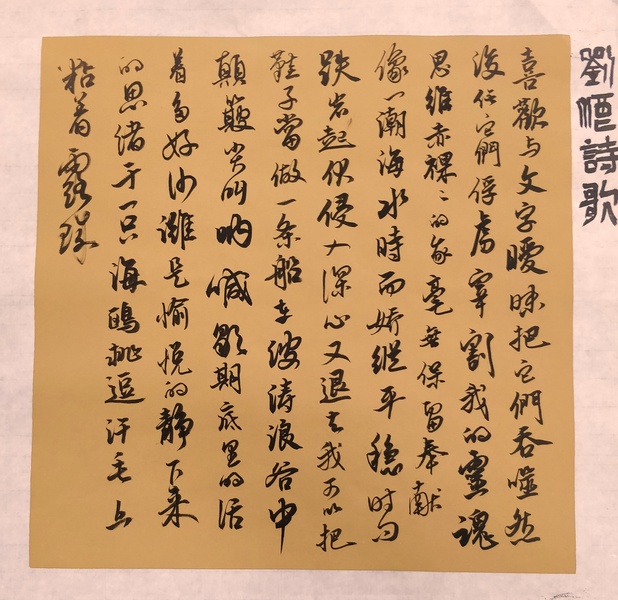 劉詩歌
喜歡与文字曖昧把它們吞噬然
後任它們俘虜宰割我的靈魂
思維赤裸〻的毫無保留奉献
像一潮海水時而嬌縱平穩时而
跌宕起伏侵入深心又退去我可以把
鞋子當做一条船在波涛浪谷中
顛簸尖叫吶喊歇期底里的活
着多好沙灘是愉悅的静下来
的思绪于一只海鷗挑逗汗毛上
粘着露珠